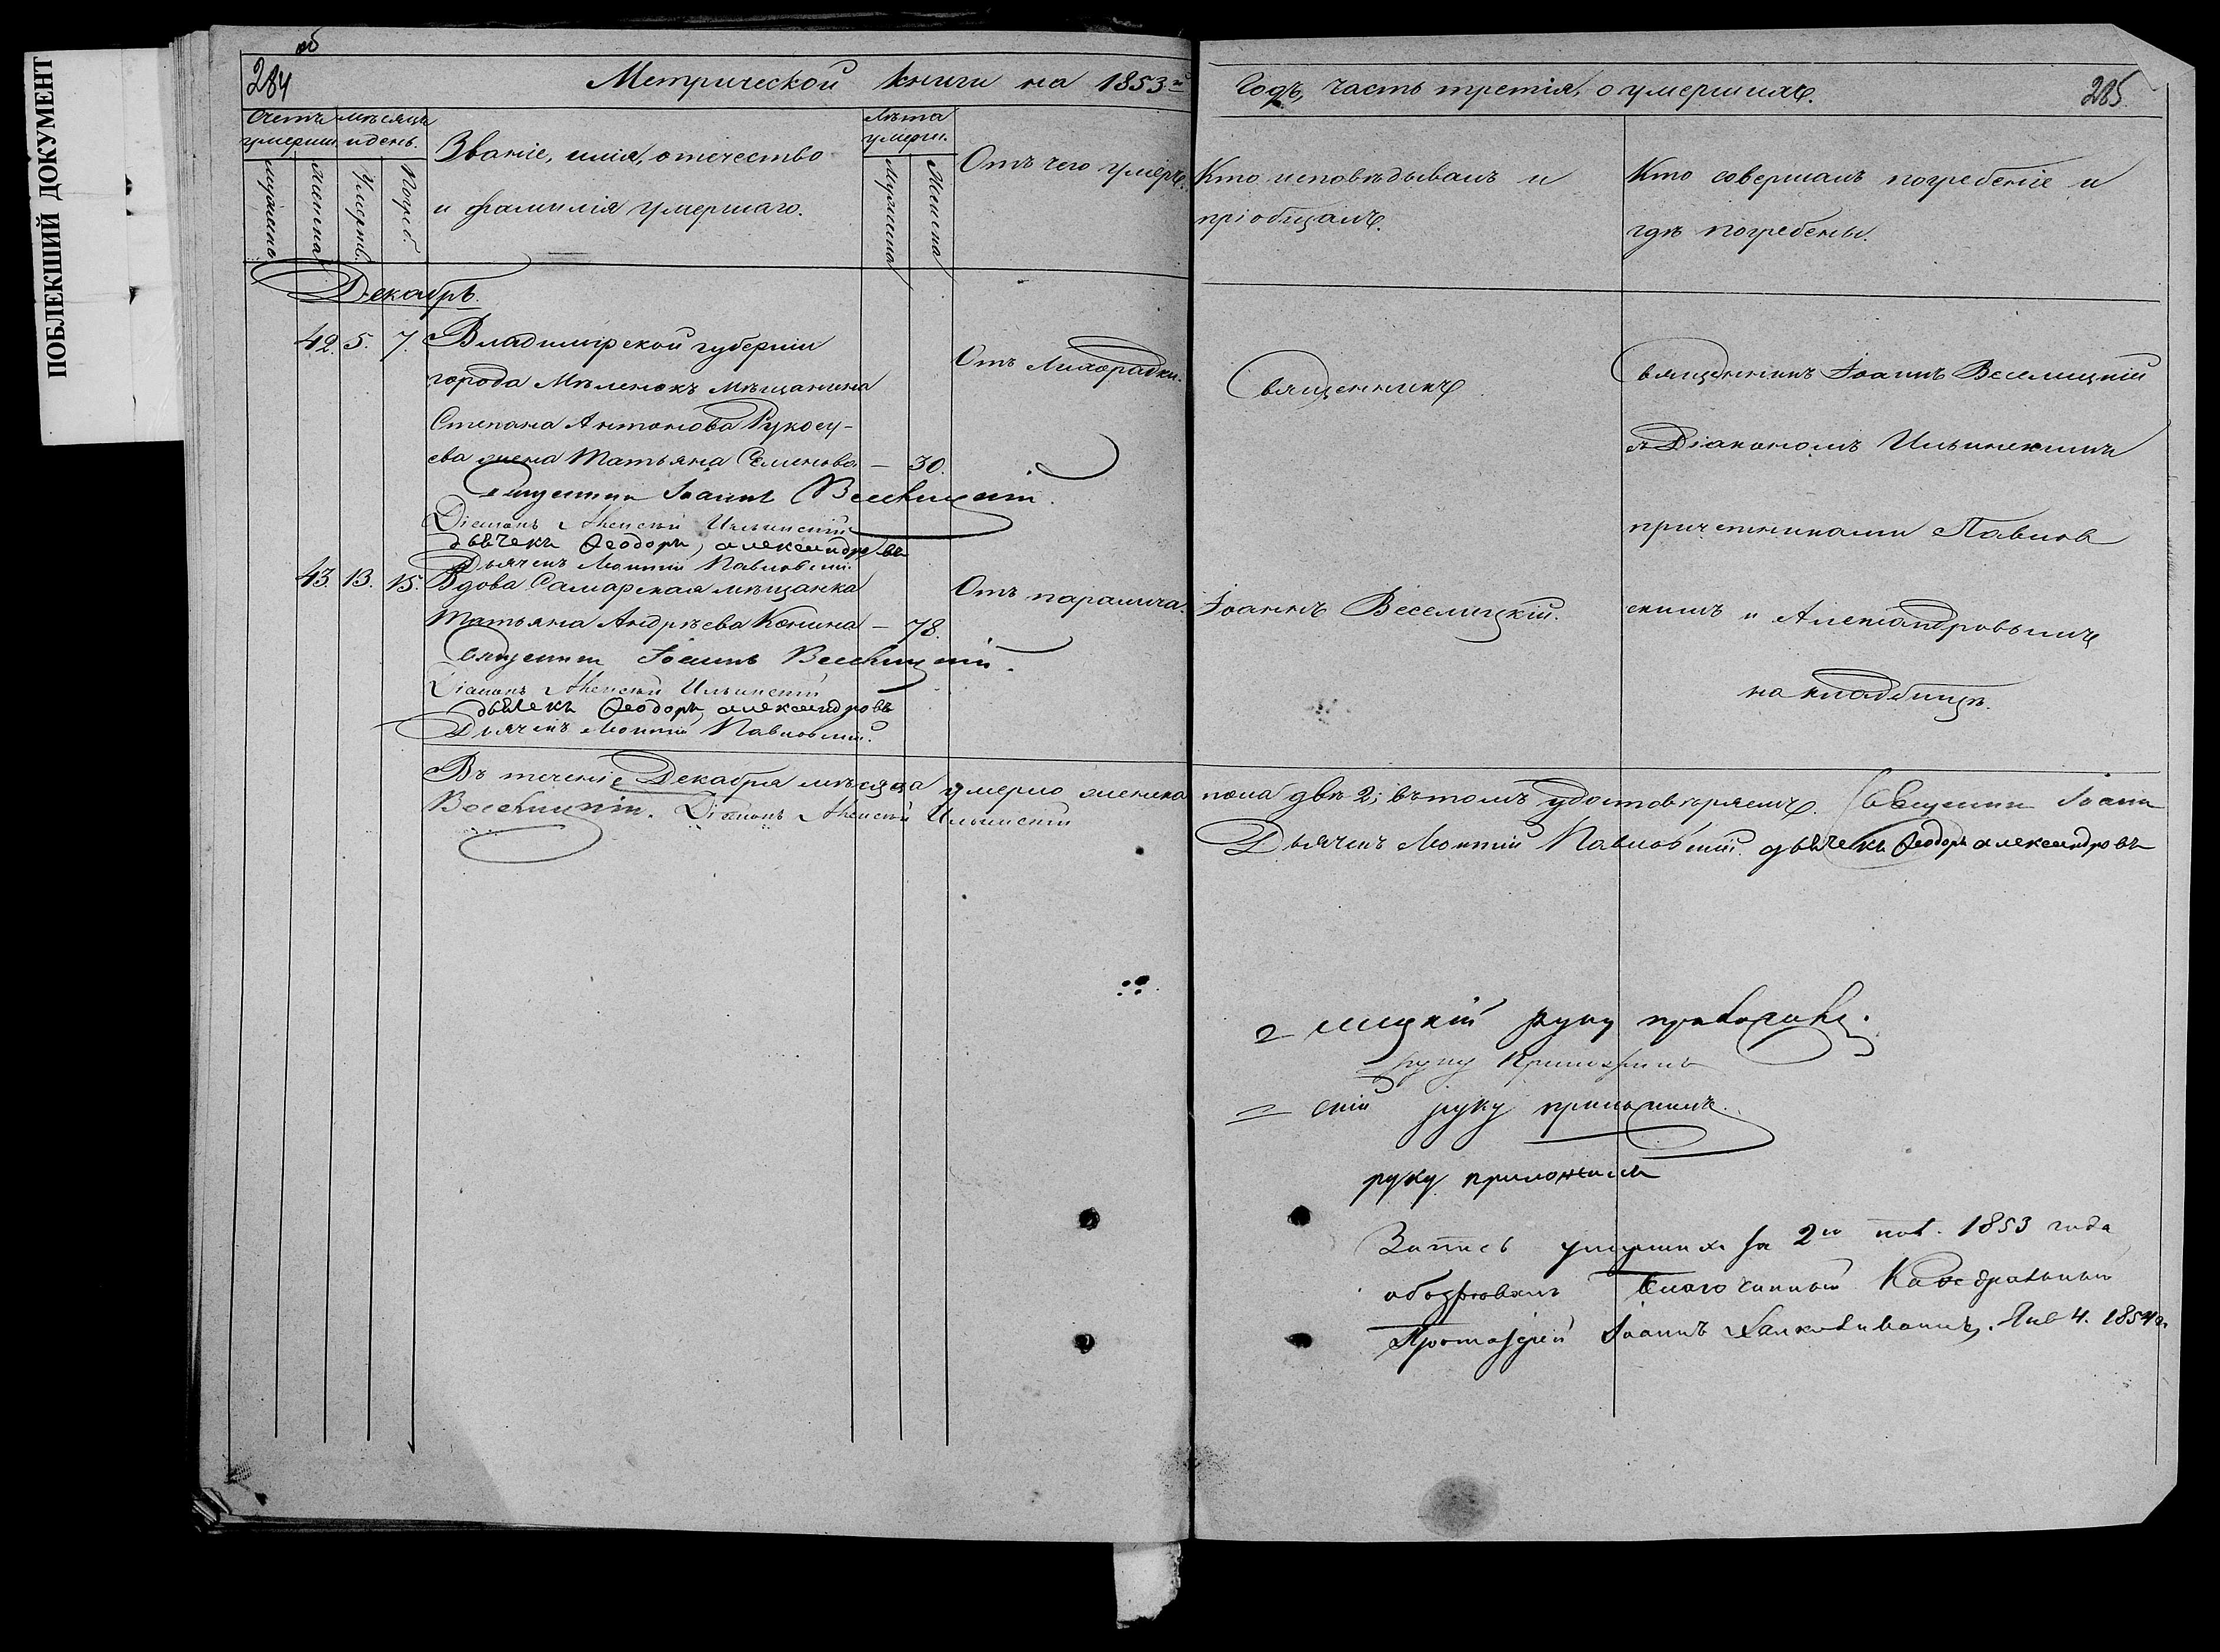 ПОБЛЕКШИЙ ДОКУМЕНТ
об
284
Метрической книги на 1853й
Счетъ умерши.
мѣсяцъ и день.
Званіе, имя, отечество
и фамилія умершаго.
Лѣта умерш.
Отъ чего умеръ.
мужеска
женска
Умертв.
Погреб.
Мужеска
Женска
Декабрь.
42. 5. 7. Владимірской губерніи
города Мѣленокъ мѣщанина
Степана Антонова Рукосу-
ева жена Татьяна Семенова — 30.
Отъ Лихорадки.
Священникъ Іоаннъ Веселицкій.
Діаконъ Алексѣй Ильинскій
дьячекъ Ѳеодоръ Александровъ
Дьячекъ Павловскій.
43. 13. 15. Вдова Самарская мѣщанка
Татьяна Андрѣева Конина — 78.
Отъ паралича.
Священникъ Іоаннъ Веселицкій.
Діаконъ Алексѣй Ильинскій
дьячекъ Ѳеодоръ Александровъ
Дьячекъ Павловскій.
Въ теченіе Декабря мѣсяца умерло женска
Веселицкій. Діаконъ Алексѣй Ильинскій
Годъ, часть третія, о умершихъ.
285
Кто исповѣдывалъ и
пріобщалъ.
Кто совершалъ погребеніе и
гдѣ погребены.
Священникъ
Іоаннъ Веселицкій.
Священникъ Іоаннъ Веселицкій
съ Діакономъ Ильинскимъ
причетниками Павлов
скимъ и Александровымъ
на кладбищѣ.
пола двѣ 2; въ томъ удостовѣряемъ. Священникъ Іоаннъ
Дьячекъ Павловскій. дьячекъ Ѳеодоръ Александровъ
лицкій руку приложилъ.
руку приложилъ
скій руку приложилъ.
руку приложилъ
Запись умершихъ за 2ю пол. 1853 года
обозрѣвалъ Благочинный Каѳедральный
Протоіерей Іоаннъ Янв 4. 1854 г.